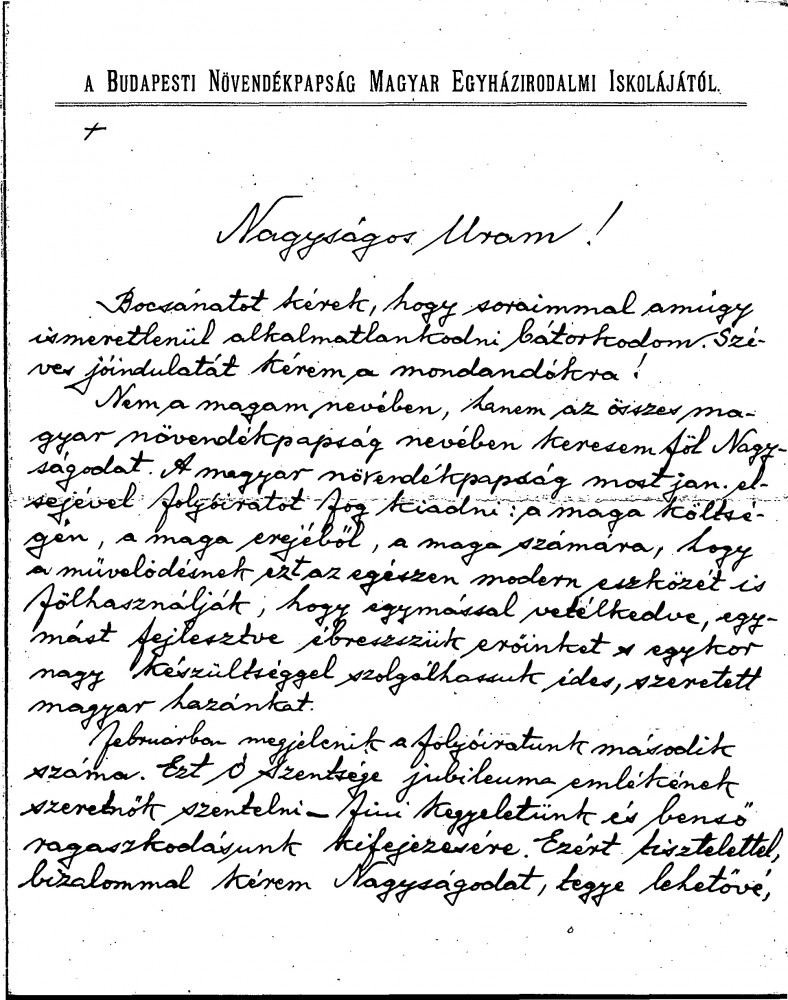 A BUDAPESTI NÖVENDÉKPAPSÁG MAGYAR EGYHÁZIRODALMI ISKOLÁJÁTÓL.
+
Nagyságos Uram!
Bocsánatot kérek, hogy soraimmal amúgy
ismeretlenül alkalmatlankodni bátorkodom. Szé-
ves jóindulatát kérem a mondandókra!
Nem a magam nevében, hanem az összes ma-
gyar növendékpapság nevében keresem föl Nagy-
ságodat. A magyar növendékpapság most jan. el-
sejével folyóiratot fog kiadni: a maga költsé-
gén, a maga erejéből, a maga számára, hogy
a művelődésnek ezt az egészen modern eszközét is
fölhasználják, hogy egymással vetélkedve, egy-
mást fejlesztve ébreszszük erőinket s egykor
nagy készültséggel szolgálhassuk édes, szeretett
magyar hazánkat.
Februárban megjelenik a folyóiratunk második
száma. Ezt Ő Szentsége jubileuma emlékének
szeretnők szentelni – fiui kegyeletünk és benső
ragaszkodásunk kifejezésére. Ezért tisztelettel,
bizalommal kérem Nagyságodat, tegye lehetővé,